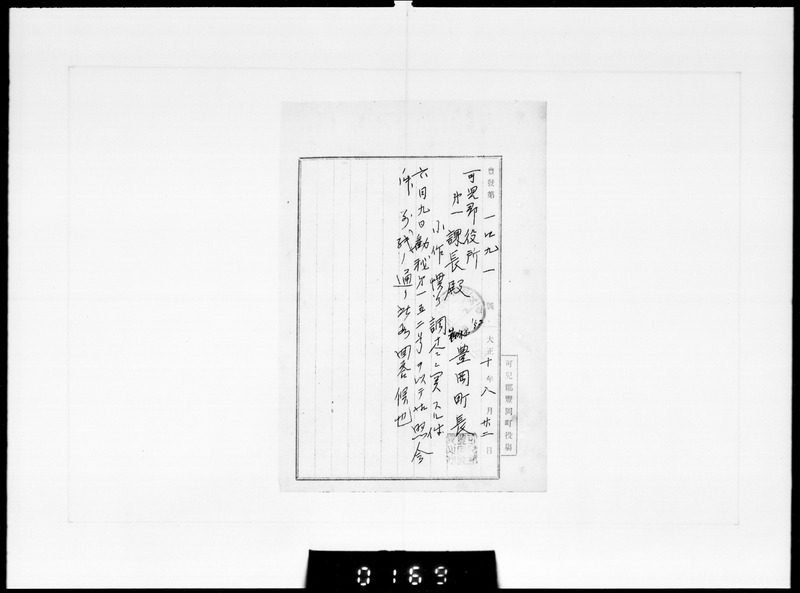 豊發第一〇九一號
大正十年八月廿二日
可兒郡豐岡町役場
可児郡役所
第一課長殿
豊岡町長
小作慣行調査ニ関スル件
六月九日勧秘第一五二号ヲ以テ御照会
件別紙ノ通リ 回答候也
0169